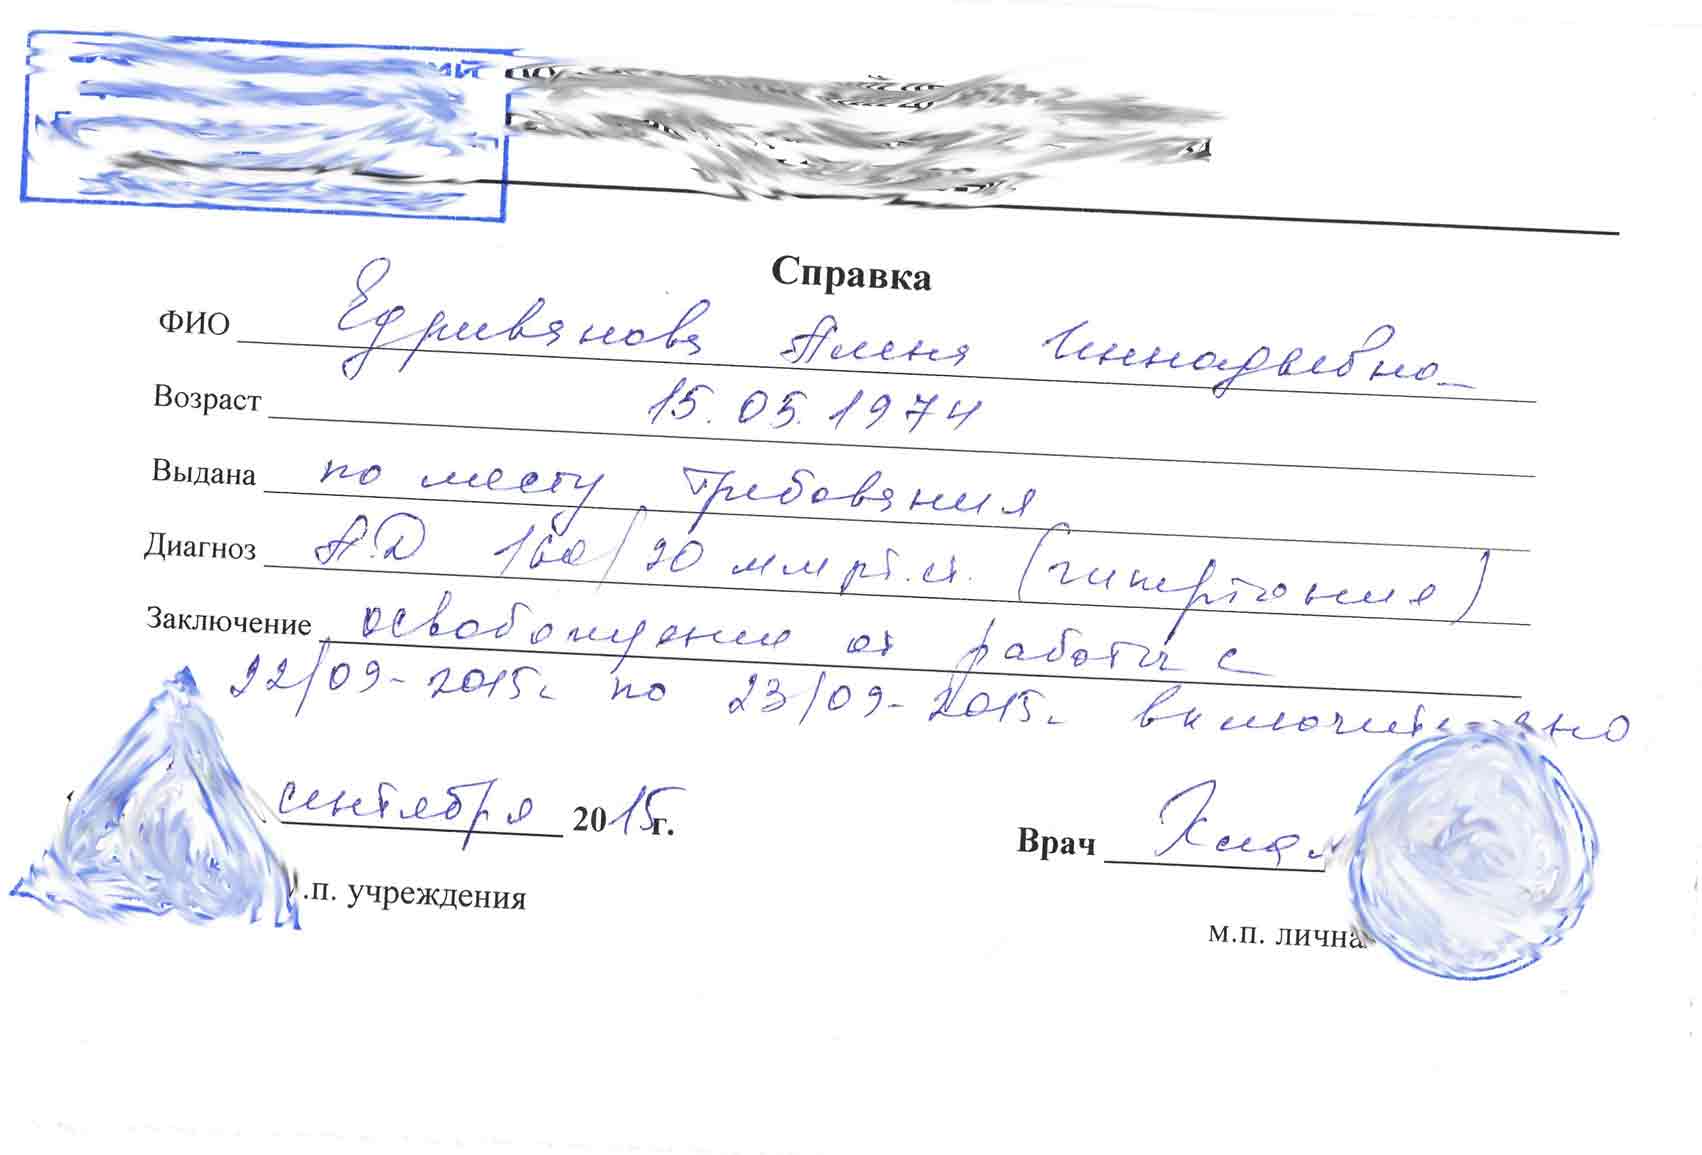 Справка
ФИО Едривянова Алена Геннадьевна
Возраст 15.05.1974
Выдана по месту требования
Диагноз А.Д 160/90 мм рт.ст. (гипертония)
Заключение освобождение от работы с
22/09-2015г. по 23/09-2015г. включительно
сентября 2015г.
Врач
.п. учреждения
м.п. лична